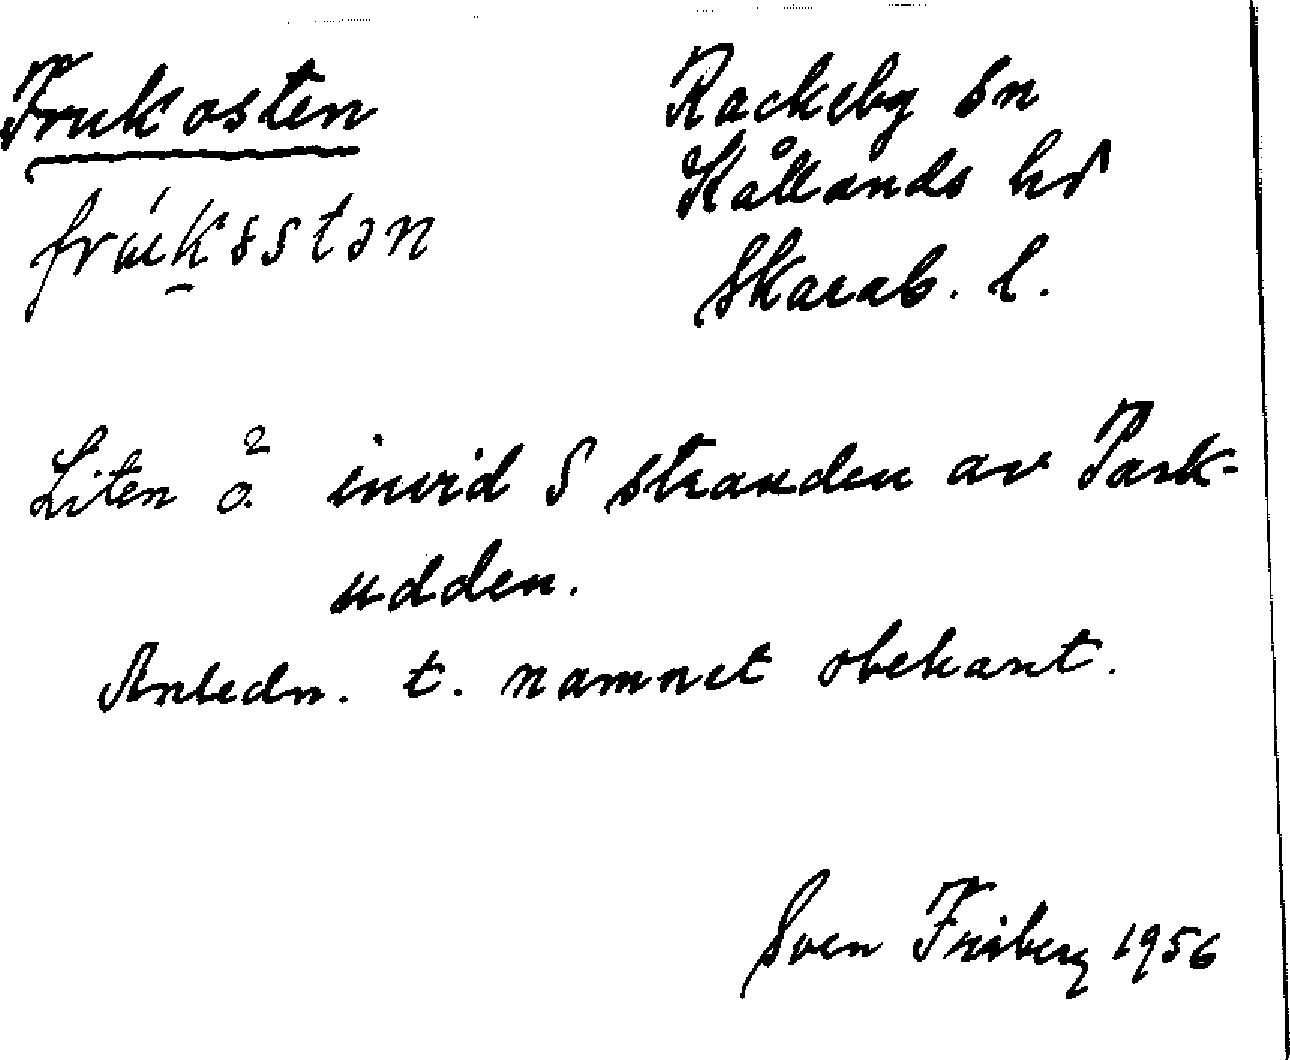 Frukosten
Rackeby sn
Kållands hd
Skarab. l.
Liten ö invid S stranden av Park-
udden.
Anledn. t. namnet obekant.
Sven Friberg 1956